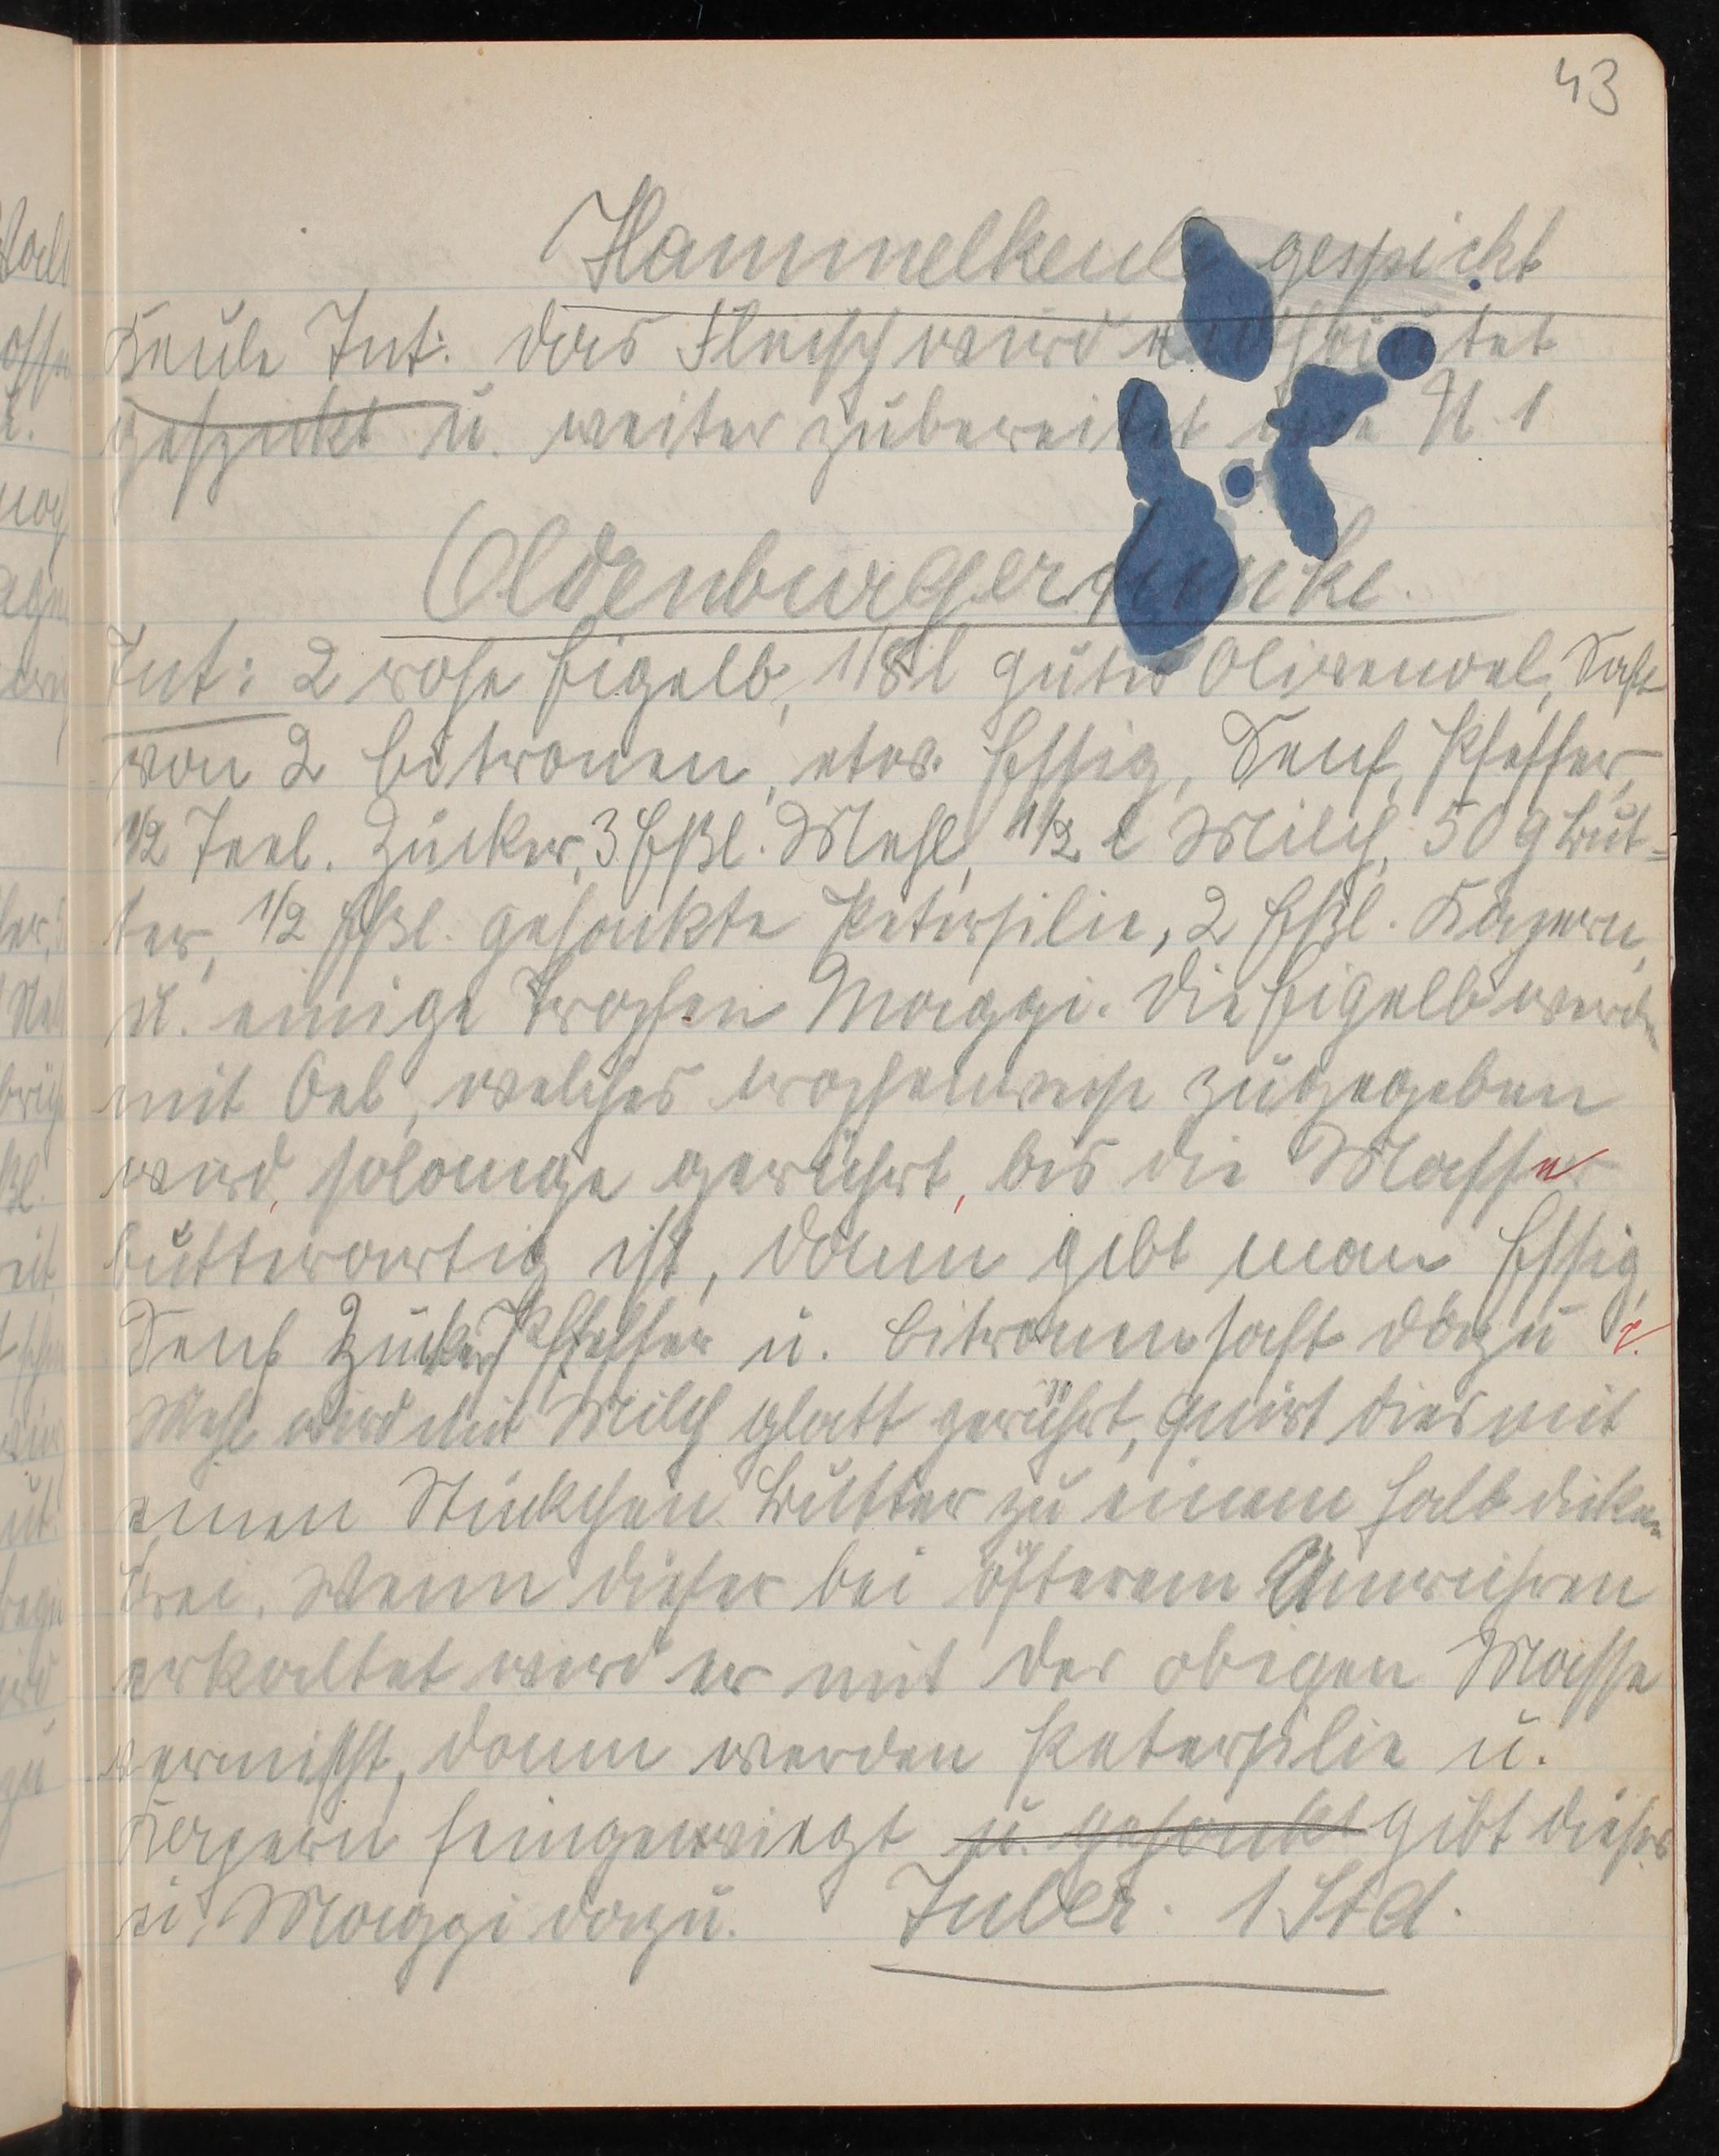 43
Hammelkeule gespickt
Keule Zut: das Fleisch wird enthäutet
gespickt u. weiter zubereitet wie N. 1
Oldenburgertunke.
Zut: 2 rohe Eigelb, 1/8 l gutes Olivenoel, Saft
von 2 Citronen, etw. Essig, Senf, Pfeffer,
1/2 Teel. Zucker, 3 Eßl. Mehl, 1/2 l Milch, 50 g But-
ter, 1/2 Eßl. gehackte Petersilie, 2 Eßl. Kapern,
u. einige Tropfen Maggi. Die Eigelb werden
mit Oel, welches tropfenweise zugegeben
wird, solange gerührt, bis die Masse
butterartig ist, dann gibt man Essig,
Senf Zucker Pfeffer u. Citronensaft dazu
Mehl wird mit Milch glatt gerührt, quirt dies mit
einen Stückchen Butter zu einem halb dicken
Brei. Wenn dieser bei öfterem Umrühren
erkaltet wird er mit der obigen Masse
vermischt, dann werden Petersilie u.
Kapern feingewiegt u. gehackt gibt dieses
u. Maggi dazu. Zuber. 1 Std.